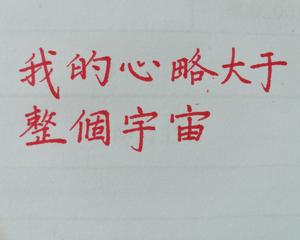 我的心略大于
整個宇宙